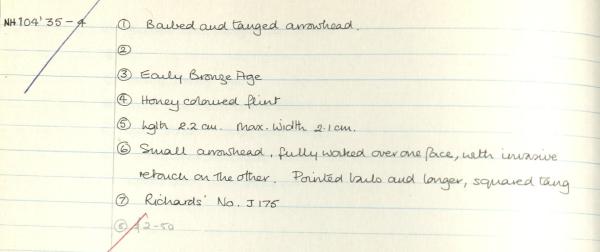 NH104'35-4 ① Barbed and tanged arrowhead.
②
③ Early Bronze Age
④ Honey coloured flint
⑤ Lgth 2.2 cm. Max. Width 2.1 cm.
⑥ Small arrowhead, fully worked over one face, with invasive
retouch on the other. Pointed barbs and longer, squared tang
⑦ Richards' No. J175
⑧ £2-50